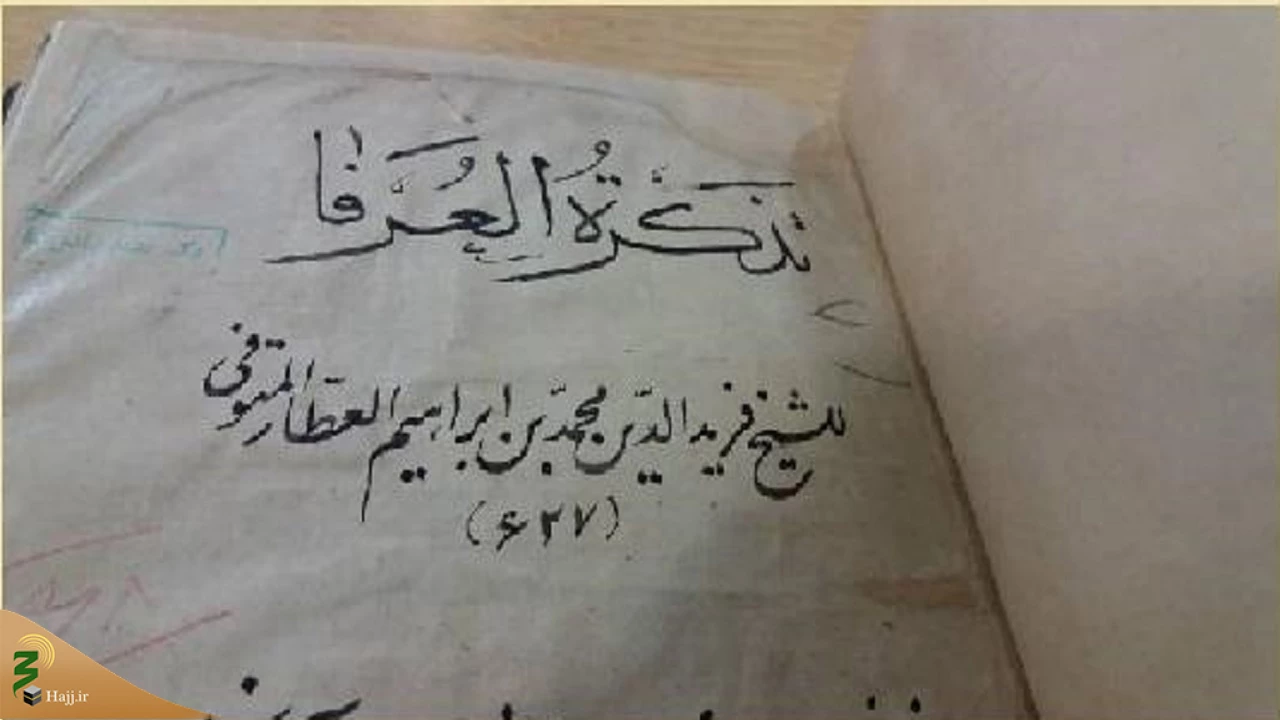 تذكرة العُرَفا
للشيخ فريد الدّين محمّد بن ابراهيم العطّار المتوفى
(۶۲۷)
Hajj.ir